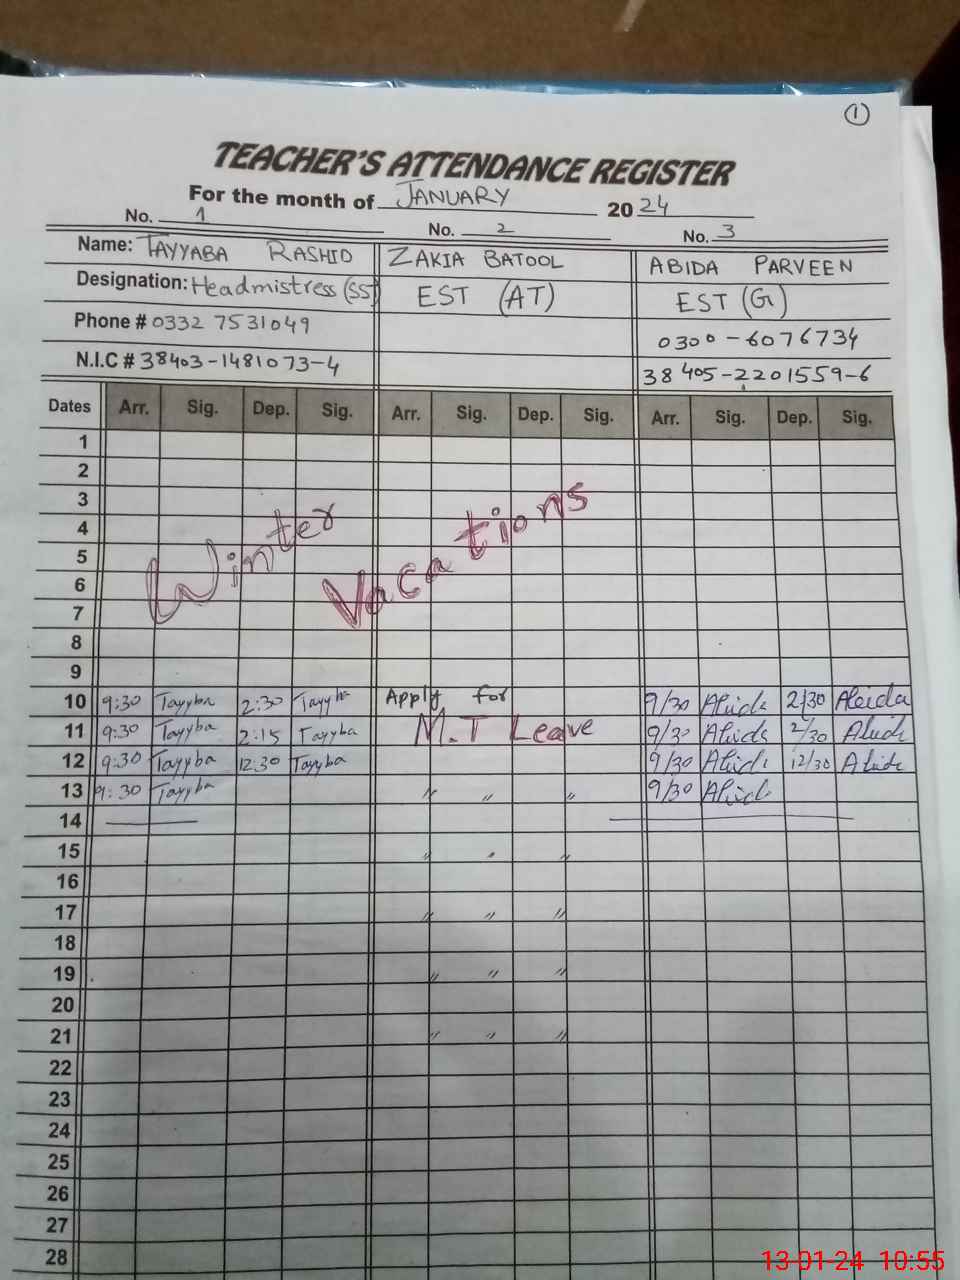 1
TEACHER'S ATTENDANCE REGISTER
For the month of JANUARY 2024
No. 1 No. 2 No. 3
Name: TAYYABA RASHID ZAKIA BATOOL ABIDA PARVEEN
Designation: Headmistress (SS) EST (AT) EST (G)
Phone # 0332 7531049 0300-6076734
N.I.C # 38403-1481073-4 38405-2201559-6
Dates Arr. Sig. Dep. Sig. Arr. Sig. Dep. Sig. Arr. Sig. Dep. Sig.
1
2
3
4
5
6
7
8
9
Winter Vacations
10 9:30 Tayyba 2:30 Tayyba Apply for 9/30 Abida 2/30 Abida
11 9:30 Tayyba 2:15 Tayyba M.T Leave 9/30 Abida 2/30 Abida
12 9:30 Tayyba 12:30 Tayyba 9/30 Abida 12/30 Abida
13 9:30 Tayyba " " " 9/30 Abida
14
15 " " "
16
17 " " "
18
19 " " "
20
21 " " "
22
23
24
25
26
27
28
13-01-24 10:55